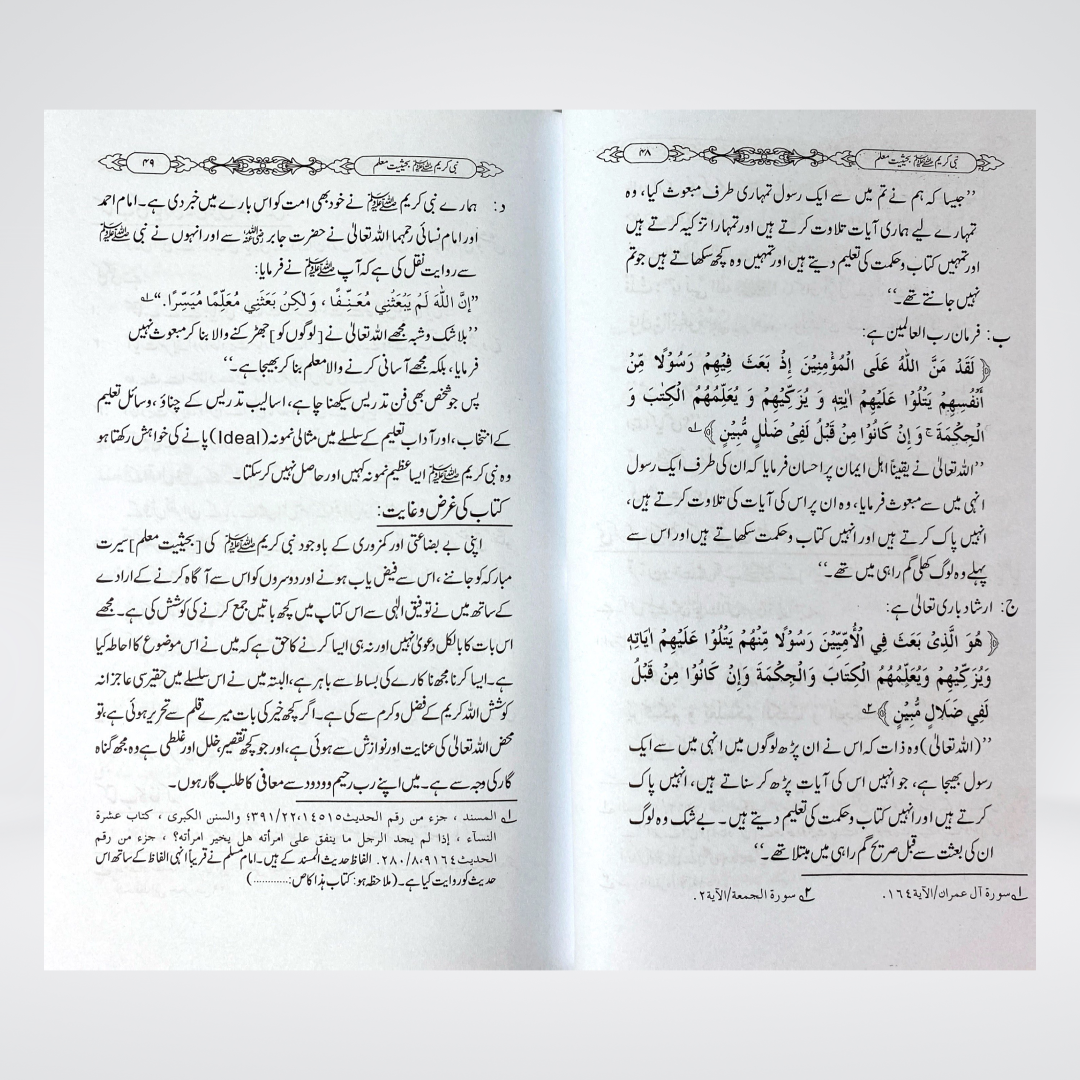 نبی کریم ﷺ بحیثیت معلم
۴۸
’’جیسا کہ ہم نے تم میں سے ایک رسول تمہاری طرف مبعوث کیا، وہ
تمہارے لیے ہماری آیات تلاوت کرتے ہیں اور تمہارا تزکیہ کرتے ہیں
اور تمہیں کتاب و حکمت کی تعلیم دیتے ہیں اور تمہیں وہ کچھ سکھاتے ہیں جو تم
نہیں جانتے تھے۔‘‘
ب: فرمان رب العالمین ہے:
﴿لَقَدْ مَنَّ اللّٰهُ عَلَى الْمُؤْمِنِيْنَ اِذْ بَعَثَ فِيْهِمْ رَسُوْلًا مِّنْ
اَنْفُسِهِمْ يَتْلُوْا عَلَيْهِمْ اٰيٰتِهٖ وَ يُزَكِّيْهِمْ وَ يُعَلِّمُهُمُ الْكِتٰبَ وَ
الْحِكْمَةَ ۚ وَ اِنْ كَانُوْا مِنْ قَبْلُ لَفِيْ ضَلٰلٍ مُّبِيْنٍ﴾ ۱؎
’’اللہ تعالیٰ نے یقیناً اہل ایمان پر احسان فرمایا کہ ان کی طرف ایک رسول
انہی میں سے مبعوث فرمایا، وہ ان پر اس کی آیات کی تلاوت کرتے ہیں،
انہیں پاک کرتے ہیں اور انہیں کتاب و حکمت سکھاتے ہیں اور اس سے
پہلے وہ لوگ کھلی گم راہی میں تھے۔‘‘
ج: ارشاد باری تعالیٰ ہے:
﴿هُوَ الَّذِيْ بَعَثَ فِي الْاُمِّيِّيْنَ رَسُوْلًا مِّنْهُمْ يَتْلُوْا عَلَيْهِمْ اٰيَاتِهٖ
وَيُزَكِّيْهِمْ وَيُعَلِّمُهُمُ الْكِتَابَ وَالْحِكْمَةَ وَاِنْ كَانُوْا مِنْ قَبْلُ
لَفِيْ ضَلَالٍ مُّبِيْنٍ﴾ ۲؎
’’(اللہ تعالیٰ) وہ ذات کہ اس نے ان پڑھ لوگوں میں انہی میں سے ایک
رسول بھیجا ہے، جو انہیں اس کی آیات پڑھ کر سناتے ہیں، انہیں پاک
کرتے ہیں اور انہیں کتاب و حکمت کی تعلیم دیتے ہیں۔ بے شک وہ لوگ
ان کی بعثت سے قبل صریح گم راہی میں مبتلا تھے۔‘‘
۱؎ سورة آل عمران/الآية ١٦٤. ۲؎ سورة الجمعة/الآية ٢.
نبی کریم ﷺ بحیثیت معلم
۴۹
د: ہمارے نبی کریم ﷺ نے خود بھی امت کو اس بارے میں خبر دی ہے۔ امام احمد
اور امام نسائی رحمہما اللہ تعالیٰ نے حضرت جابر رضی اللہ عنہ سے اور انہوں نے نبی ﷺ
سے روایت نقل کی ہے کہ آپ ﷺ نے فرمایا:
”إِنَّ اللّٰهَ لَمْ يَبْعَثْنِي مُعَنِّفًا، وَلٰكِنْ بَعَثَنِي مُعَلِّمًا مُيَسِّرًا.“ ۱؎
’’بلاشک و شبہ مجھے اللہ تعالیٰ نے [لوگوں کو] جھڑکنے والا بنا کر مبعوث نہیں
فرمایا، بلکہ مجھے آسانی کرنے والا معلم بنا کر بھیجا ہے۔‘‘
پس جو شخص بھی فن تدریس سیکھنا چاہے، اسالیب تدریس کے چناؤ، وسائل تعلیم
کے انتخاب، اور آداب تعلیم کے سلسلے میں مثالی نمونہ (Ideal) پانے کی خواہش رکھتا ہو
وہ نبی کریم ﷺ ایسا عظیم نمونہ کہیں اور حاصل نہیں کرسکتا۔
کتاب کی غرض و غایت:
اپنی بے بضاعتی اور کمزوری کے باوجود نبی کریم ﷺ کی [بحیثیت معلم] سیرت
مبارکہ کو جاننے، اس سے فیض یاب ہونے اور دوسروں کو اس سے آگاہ کرنے کے ارادے
کے ساتھ میں نے توفیق الٰہی سے اس کتاب میں کچھ باتیں جمع کرنے کی کوشش کی ہے۔ مجھے
اس بات کا بالکل دعویٰ نہیں اور نہ ہی ایسا کرنے کا حق ہے کہ میں نے اس موضوع کا احاطہ کیا
ہے۔ ایسا کرنا مجھ ناکارے کی بساط سے باہر ہے، البتہ میں نے اس سلسلے میں حقیر سی عاجزانہ
کوشش اللہ کریم کے فضل و کرم سے کی ہے۔ اگر کچھ خیر کی بات میرے قلم سے تحریر ہوئی ہے، تو
محض اللہ تعالیٰ کی عنایت اور نوازش سے ہوئی ہے، اور جو کچھ تقصیر، خلل اور غلطی ہے وہ مجھ گناہ
گار کی وجہ سے ہے۔ میں اپنے رب رحیم و ودود سے معافی کا طلب گار ہوں۔
۱؎ المسند ، جزء من رقم الحديث ١٤٥١٥، ٣٩١/٢٢؛ والسنن الكبرى ، كتاب عشرة
النسآء ، إذا لم يجد الرجل ما ينفق على امرأته هل يخير امرأته؟ ، جزء من رقم
الحديث ٩١٦٤، ٢٨٠/٨. الفاظ حدیث المسند کے ہیں۔ امام مسلم نے قریباً انہی الفاظ کے ساتھ اس
حدیث کو روایت کیا ہے۔ (ملاحظہ ہو: کتاب ہذا کا ص:............)